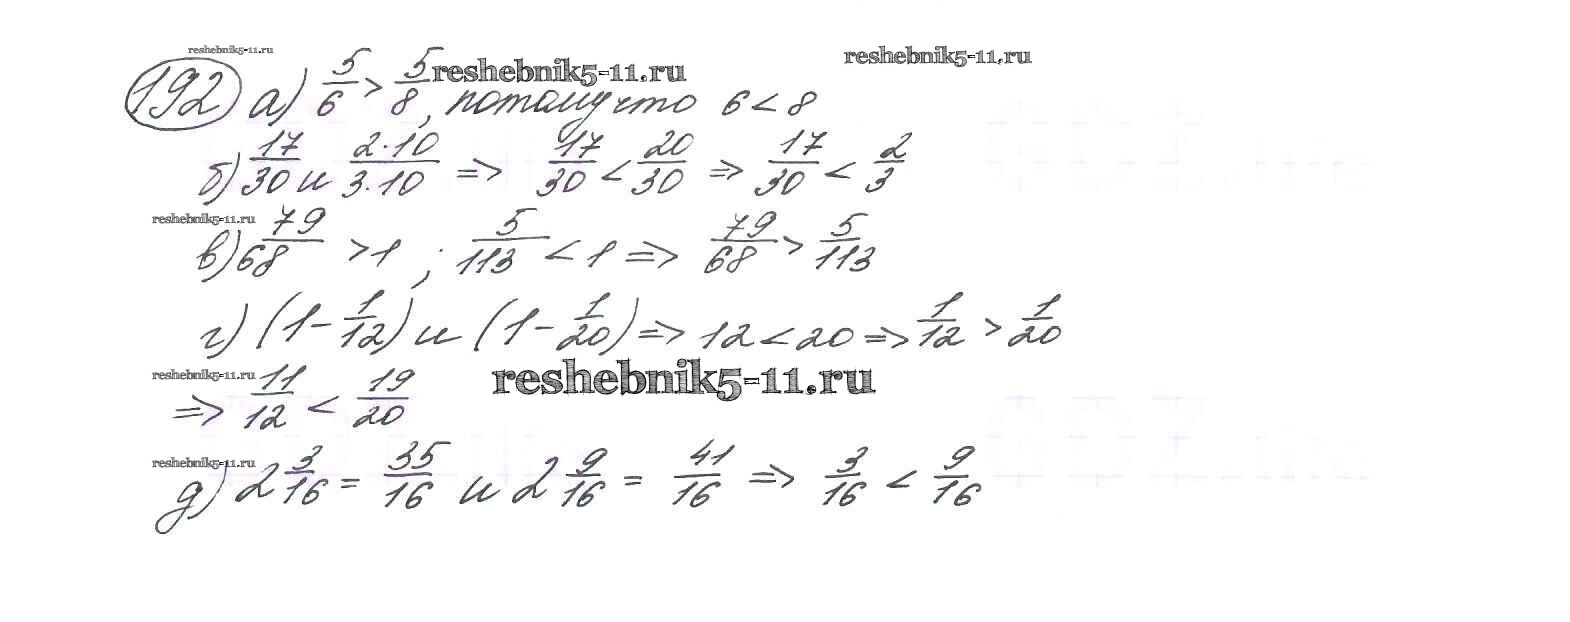 reshebnik5-11.ru
reshebnik5-11.ru
192 а) 5/6 > 5/8, потому что 6 < 8
reshebnik5-11.ru
б) 17/30 и 2·10/3·10 => 17/30 < 20/30 => 17/30 < 2/3
reshebnik5-11.ru
в) 79/68 > 1 ; 5/113 < 1 => 79/68 > 5/113
г) (1 - 1/12) и (1 - 1/20) => 12 < 20 => 1/12 > 1/20
reshebnik5-11.ru
reshebnik5-11.ru
=> 11/12 < 19/20
reshebnik5-11.ru
д) 2 3/16 = 35/16 и 2 9/16 = 41/16 => 3/16 < 9/16